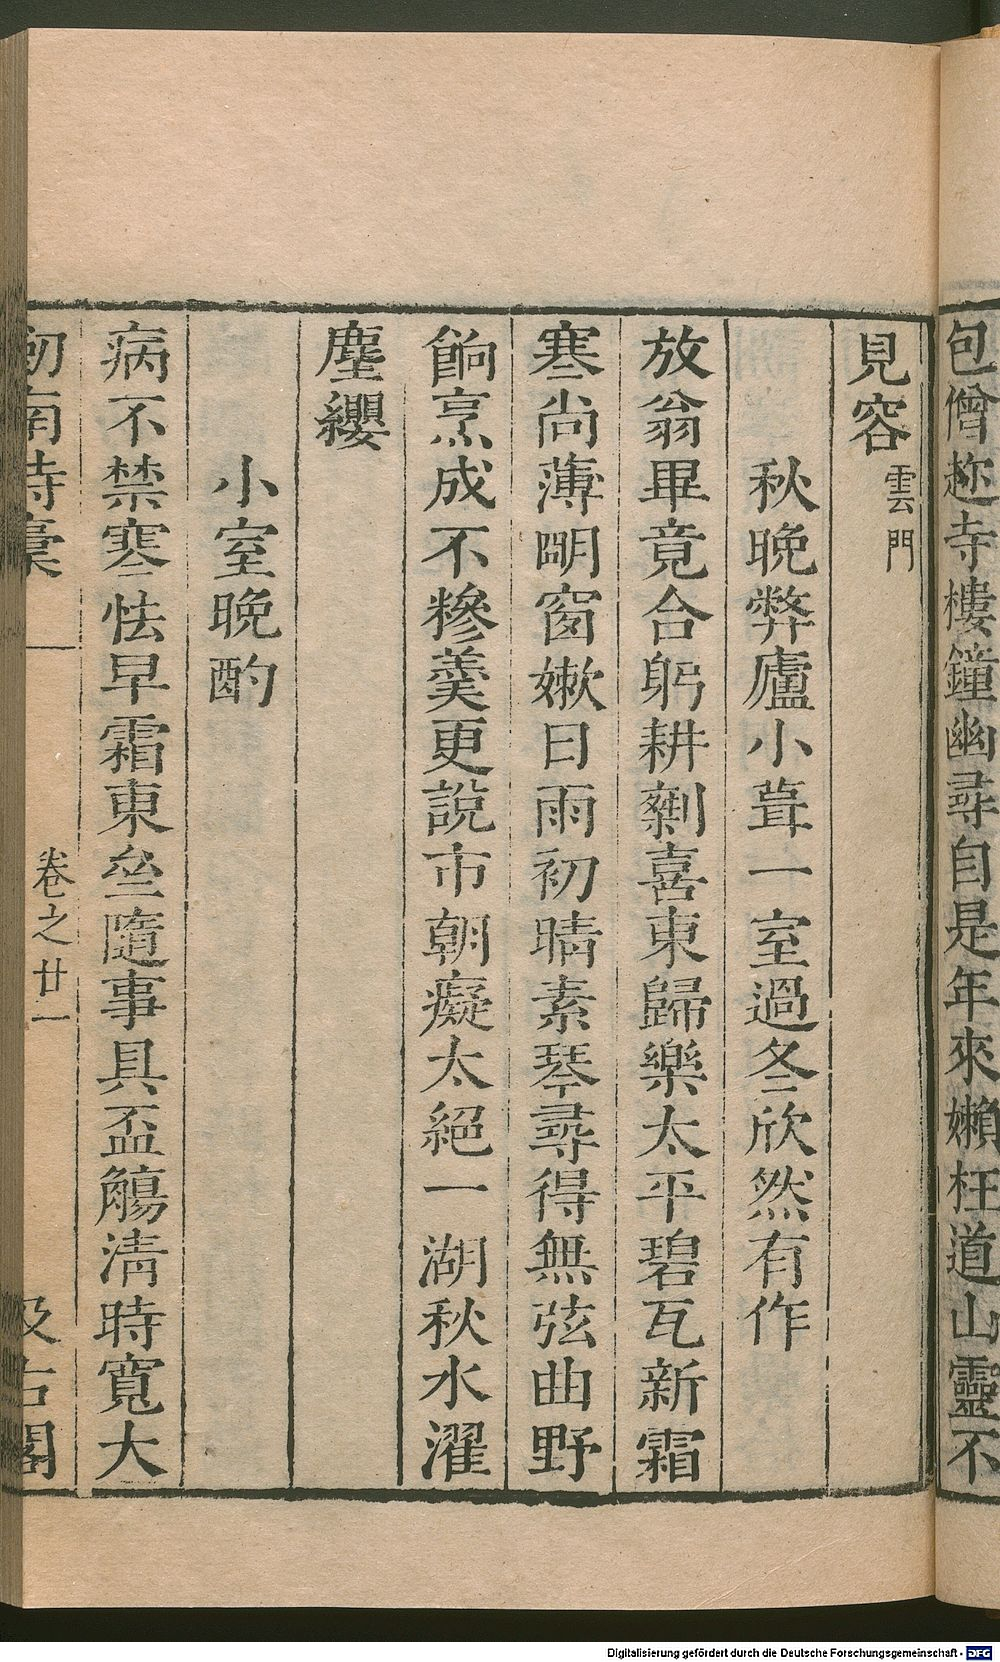 包僧趂寺樓鐘幽尋自是年來嬾枉道山靈不
見容雲門
秋晚弊廬小葺一室過冬欣然有作
放翁畢竟合躬耕剩喜東歸樂太平碧瓦新霜
寒尚薄明窗嫩日雨初晴素琴尋得無弦曲野
餉烹成不糝羹更說市朝癡太絕一湖秋水濯
塵纓
小室晚酌
病不禁寒怯早霜東坐隨事具盃觴淸時寬大
劒南詩稾 卷之廿一 汲古閣
Digitalisierung gefördert durch die Deutsche Forschungsgemeinschaft - DFG